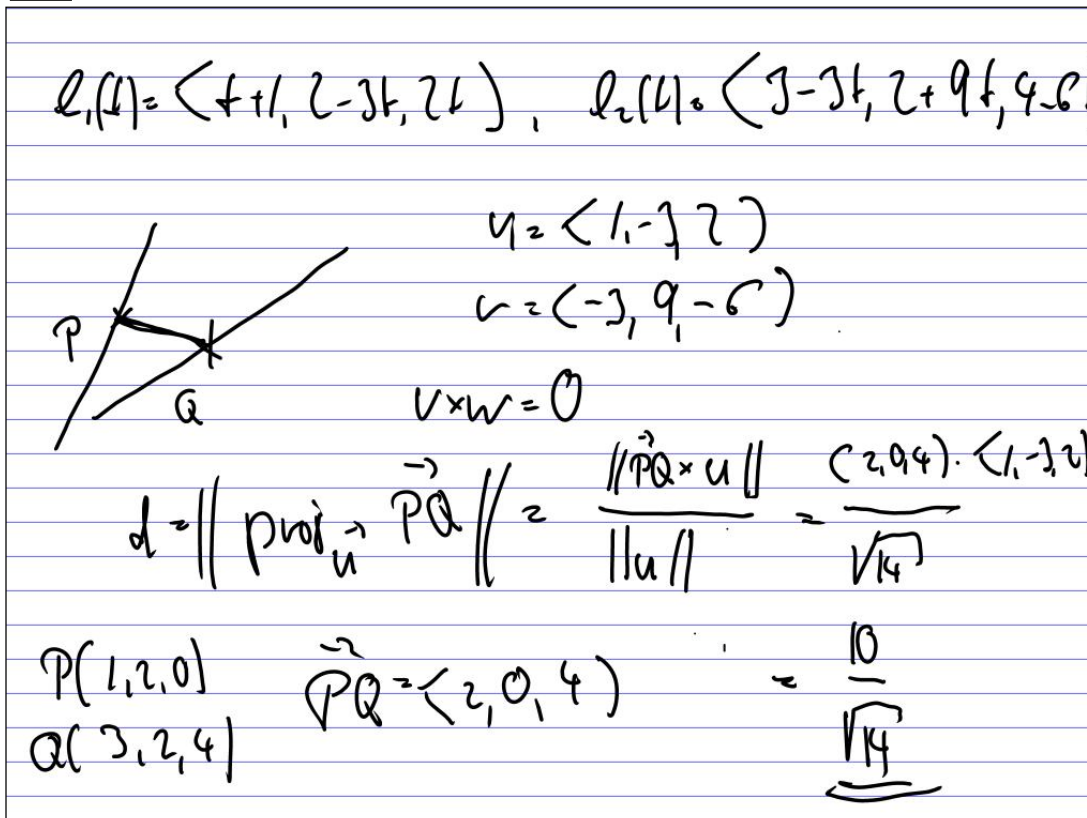 l₁(t)= <t+1, 2-3t, 2t>, l₂(t)= <3-3t, 2+9t, 4-6
u= <1,-3,2>
v=<-3, 9,-6>
P
Q
v×w=0
d=‖proj_u⃗ P⃗Q‖ = ‖P⃗Q×u‖ / ‖u‖ = <2,0,4>·<1,-3,2> / √14
P(1,2,0)
P⃗Q=<2,0,4>
= 10/√14
Q(3,2,4)